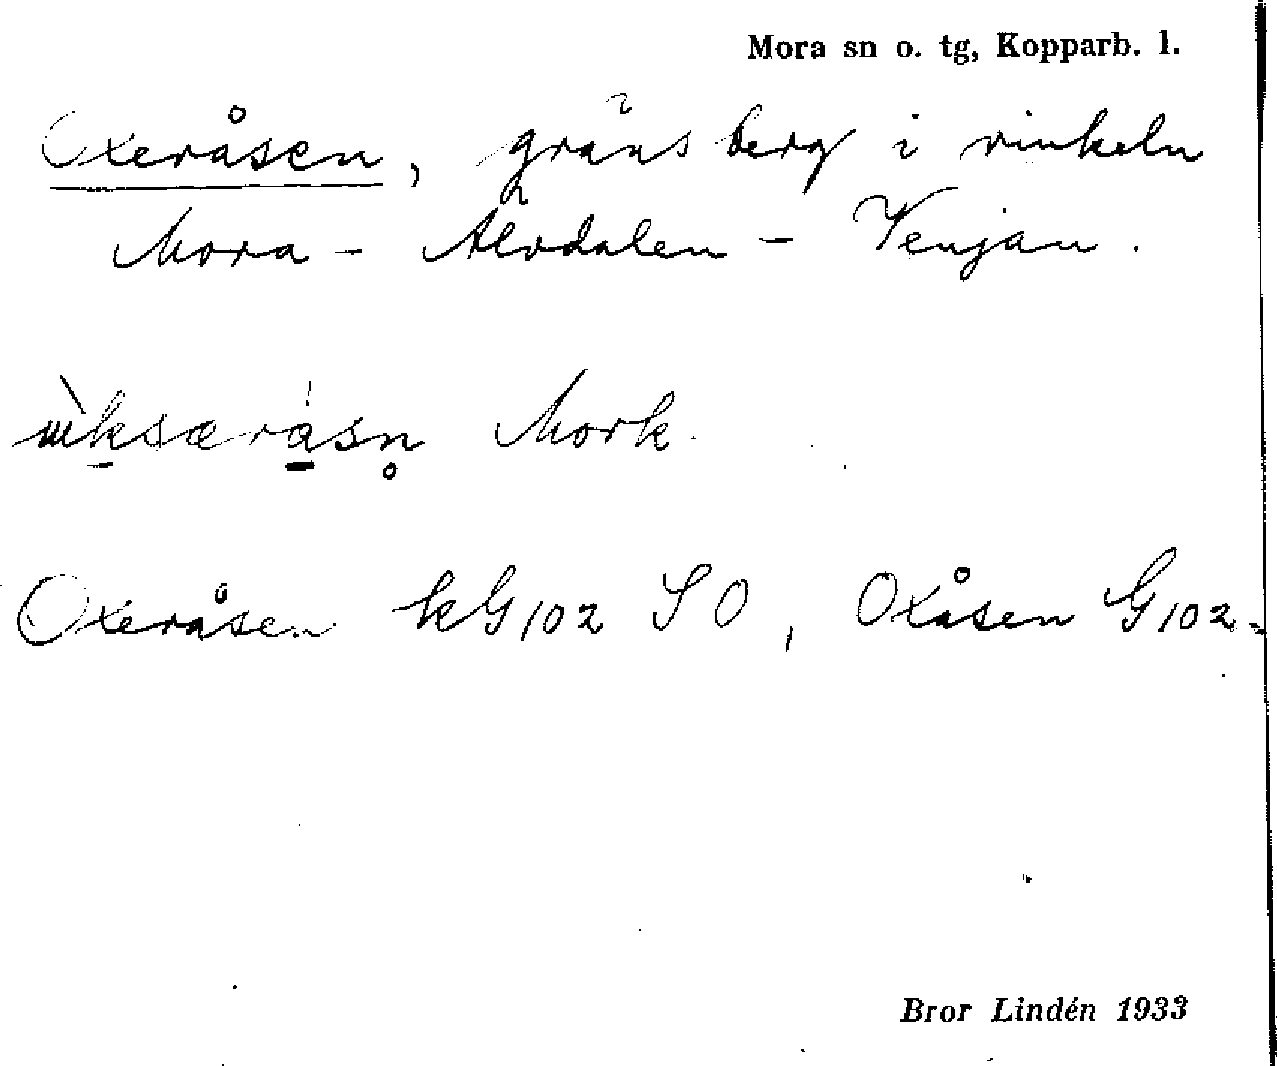 Mora sn o. tg, Kopparb. l.
Oxeråsen, gränsberg i vinkeln
Mora - Älvdalen - Venjan.
Mork.
Oxeråsen kG102 SO, Oxåsen G102.
Bror Lindén 1933